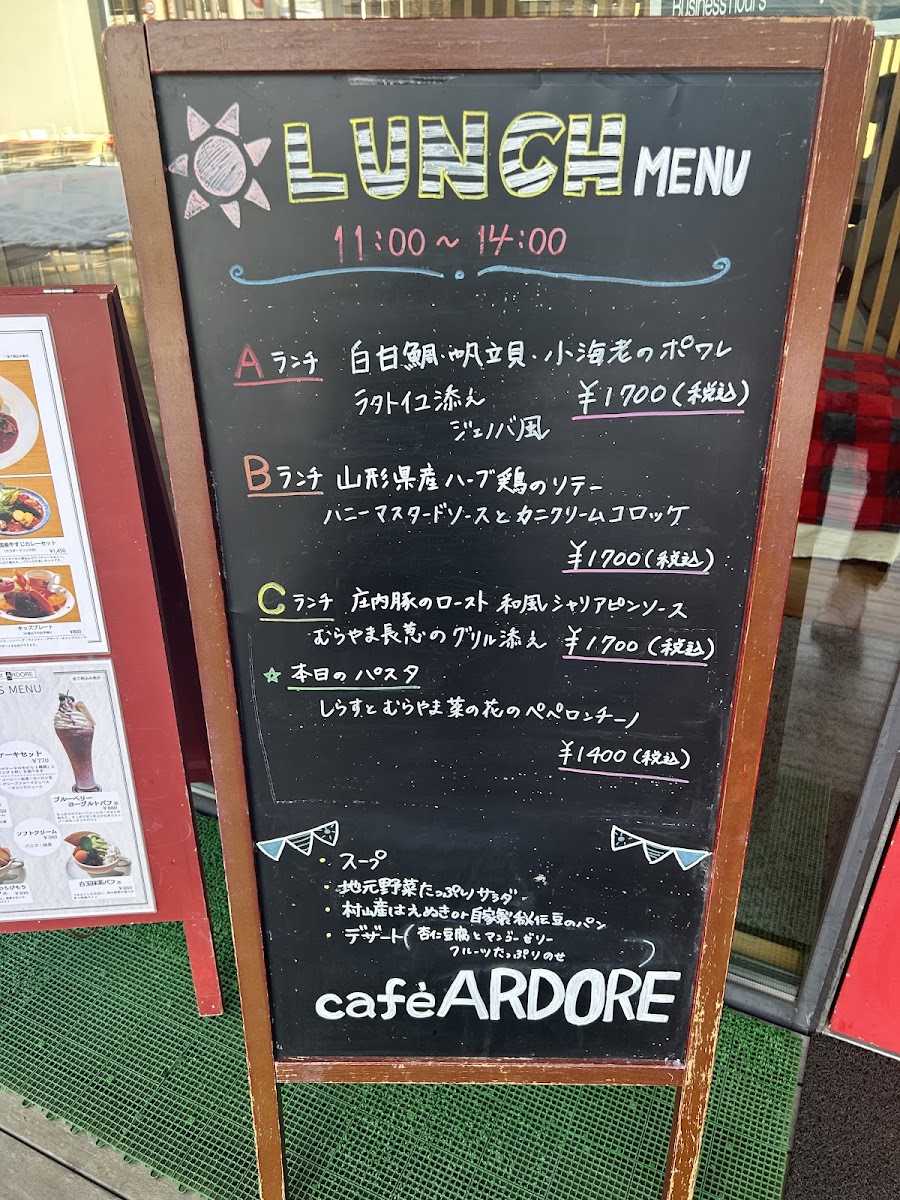 Business hours
LUNCH MENU
11:00～14:00
Aランチ 白甘鯛・帆立貝・小海老のポワレ
ラタトイユ添え ¥1700(税込)
ジェノバ風
Bランチ 山形県産ハーブ鶏のソテー
ハニーマスタードソースとカニクリームコロッケ
¥1700(税込)
Cランチ 庄内豚のロースト 和風シャリアピンソース
むらやま長葱のグリル添え ¥1700(税込)
☆本日のパスタ
しらすとむらやま菜の花のペペロンチーノ
¥1400(税込)
・スープ
・地元野菜たっぷりサラダ
・村山産はえぬきor自家製秘伝豆のパン
・デザート(杏仁豆腐とマンゴーゼリー
フルーツたっぷりのせ)
cafèARDORE
国産牛すじカレーセット
¥1,450
キッズプレート
¥800
ARDORE
S MENU
ケーキセット
¥770
ブルーベリー
ヨーグルトパフェ
¥880
ソフトクリーム
¥380
バニラ・抹茶
わらびもち
白玉抹茶パフェ
¥880